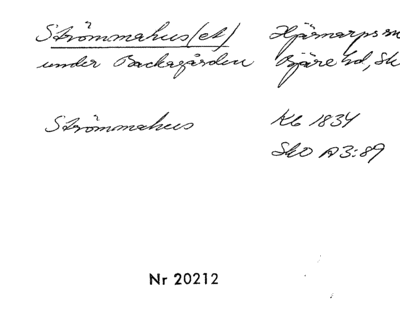 Strömmahus(et) Hjärnarps sn
under Backagården Bjäre hd, Sk
Strömmahus Kb 1834
SkO A3:89
Nr 20212